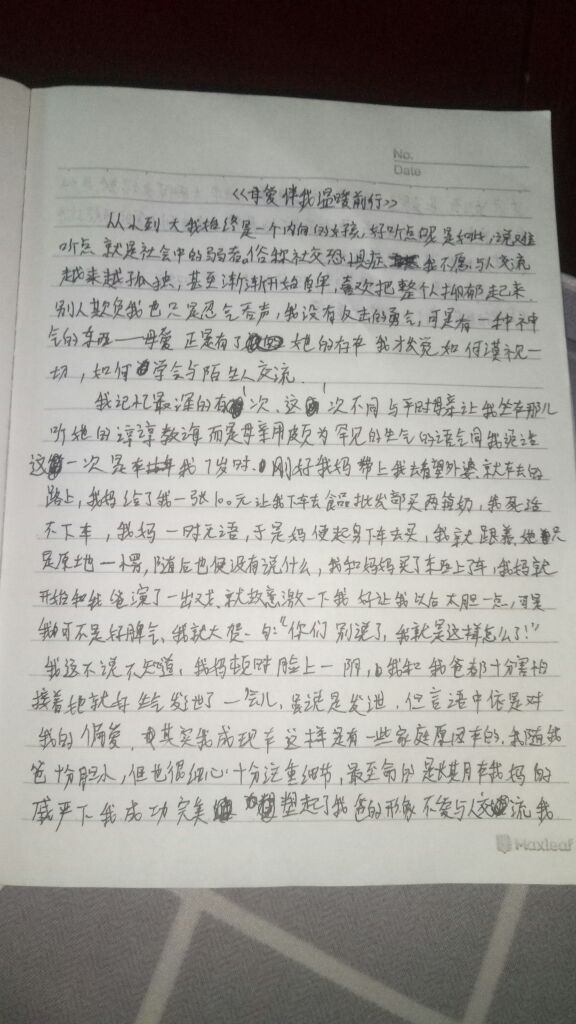 No.
Date
《母爱伴我温暖前行》
从小到大我始终是一个内向的女孩,好听点呢是如此,说难
听点就是社会中的弱者,俗称社交恐惧症,我不愿与人交流
越来越孤独,甚至渐渐开始自卑,喜欢把整个人抑郁起来.
别人欺负我也只是忍气吞声,我没有反击的勇气,可是有一种神
气的东西——母爱 正是有了她的存在 我才发觉如何漠视一
切,如何学会与陌生人交流.
我记忆最深的有次,这次不同与平时母亲让我坐在那儿
听她的谆谆教诲而是母亲用颇为罕见的生气的语气同我说话
这一次是在我7岁时,刚好我妈带上我去看望外婆 就在去的
路上,我妈给了我一张100元让我下车去食品批发部买两箱奶,我死活
不下车,我妈一时无语,于是妈便起身下车去买,我就跟着,她只
是原地一愣,随后也便没有说什么,我和妈妈买了东西上了车,我妈就
开始和我爸演了一出戏,就故意激一下我 好让我以后大胆一点,可是
我可不是好脾气,我就大喊一句:"你们别说了,我就是这样怎么了!"
我这不说不知道,我妈顿时脸上一阴,我和我爸都十分害怕
接着她就生气发泄了一会儿,虽说是发泄,但言语中依是对
我的偏爱,其实我成现在这样是有一些家庭原因在的,我随我
爸十分胆小,但也很细心十分注重细节,最至命的是长期在我妈的
威严下我成功完美塑起了我爸的形象 不爱与人交流 我
Maxleaf